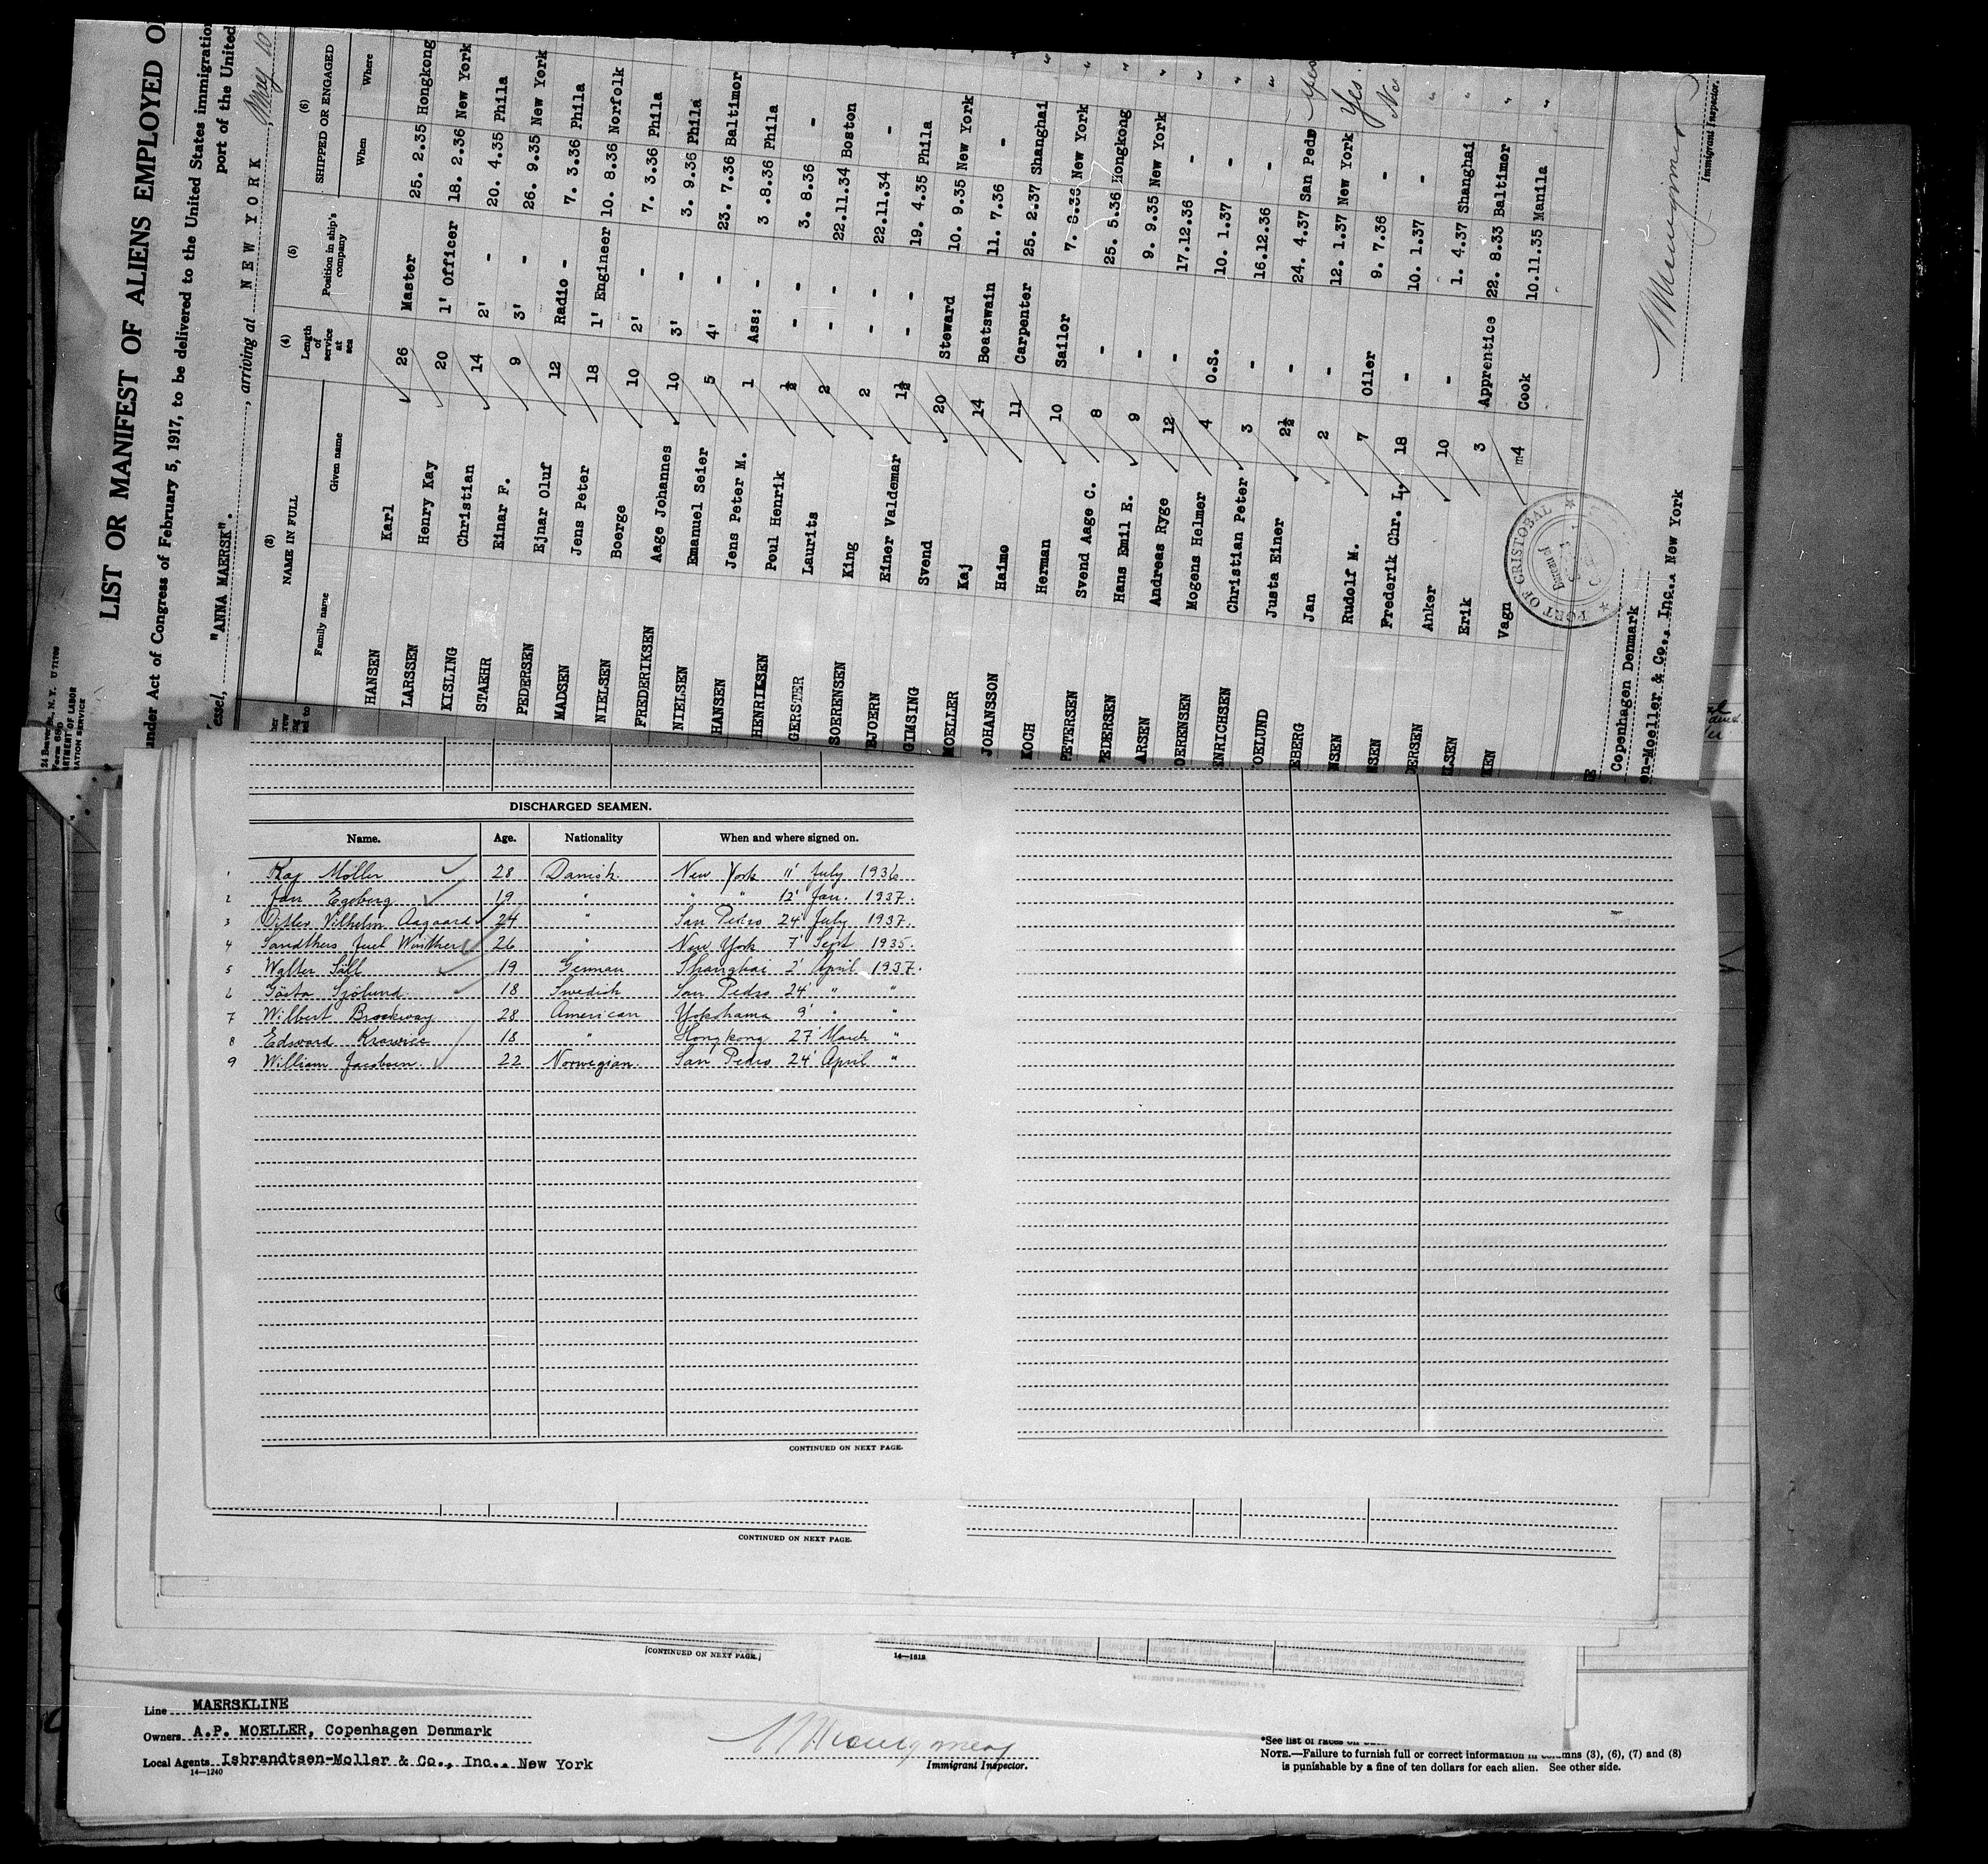 LIST OR MANIFEST OF ALIENS EMPLOYED O
under Act of Congress of February 5, 1917, to be delivered to the United States immigration
port of the United
Vessel, "ANNA MAERSK". , arriving at NEW YORK May 10
(3) NAME IN FULL
Family name
Given name
(4) Length of service at sea
(5) Position in ship's company
(6) SHIPPED OR ENGAGED
When
Where
HANSEN Karl 26 Master 25. 2.35 Hongkong
LARSSEN Henry Kay 20 1' Officer 18. 2.36 New York
KISLING Christian 14 2' - 20. 4.35 Phila
STAEHR Einar F. 9 3' - 26. 9.35 New York
PEDERSEN Ejnar Oluf 12 Radio - 7. 3.36 Phila
MADSEN Jens Peter 18 1' Engineer 10. 8.36 Norfolk
NIELSEN Boerge 10 2' - 7. 3.36 Phila
FREDERIKSEN Aage Johannes 10 3' - 3. 9.36 Phila
NIELSEN Emanuel Seier 5 4' - 23. 7.36 Baltimor
HANSEN Jens Peter M. 1 Ass: - 3 .8.36 Phila
HENRIKSEN Poul Henrik ½ - - 3. 8.36 -
GERSTER Laurits 2 - - 22.11.34 Boston
SOERENSEN King 2 - - 22.11.34 -
BJOERN Einer Valdemar 1½ - - 19. 4.35 Phila
GIMSING Svend 20 Steward 10. 9.35 New York
MOELLER Kaj 14 Boatswain 11. 7.36 -
JOHANSSON Haimo 11 Carpenter 25. 2.37 Shanghai
KOCH Herman 10 Sailor 7. 8.36 New York
PETERSEN Svend Aage C. 8 - 25. 5.36 Hongkong
EDERSEN Hans Emil E. 9 - 9. 9.35 New York
ARSEN Andreas Ryge 12 - 17.12.36 -
OERENSEN Mogens Helmer 4 O.S. 10. 1.37 -
ENRICHSEN Christian Peter 3 - 16.12.36 -
OELUND Justa Einer 2½ - 24. 4.37 San Pedro Yes
EBERG Jan 2 - 12. 1.37 New York Yes.
NSEN Rudolf M. 7 Oiler 9. 7.36 - No
NSEN Frederik Chr. L. 18 - 10. 1.37 -
DERSEN Anker 10 - 1. 4.37 Shanghai
ELSEN Erik 3 Apprentice 22. 8.33 Baltimor
Vagn 4 Cook 10.11.35 Manila
PORT OF CRISTOBAL
Copenhagen Denmark
en-Moeller & Co., Inc.. New York
Immigrant Inspector.
DISCHARGED SEAMEN.
Name. Age. Nationality When and where signed on.
1 Kaj Möller 28 Danish. New York 11' July 1936
2 Jan Egeberg 19 " " " 12' Jan. 1937.
3 Ditlev Vilhelm Aagaard 24 " San Pedro 24' July 1937.
4 Juel Winther 26 " New York 7' Sept 1935.
5 Walter Säll 19 German Shanghai 2' April 1937.
6 Gösta Sjölund 18 Swedish San Pedro 24' " "
7 Wilbert Brockway 28 American Yokohama 9' " "
8 Edward 18 " Hongkong 27' March "
9 William Jacobsen 22 Norwegian. San Pedro 24' April "
CONTINUED ON NEXT PAGE.
CONTINUED ON NEXT PAGE.
[CONTINUED ON NEXT PAGE.]
14—1518
Line MAERSKLINE
Owners A.P. MOELLER, Copenhagen Denmark
Local Agents Isbrandtsen-Moller & Co., Inc.. New York
14—1240
Immigrant Inspector.
*See list of races on
NOTE.—Failure to furnish full or correct information in columns (3), (6), (7) and (8)
is punishable by a fine of ten dollars for each alien. See other side.